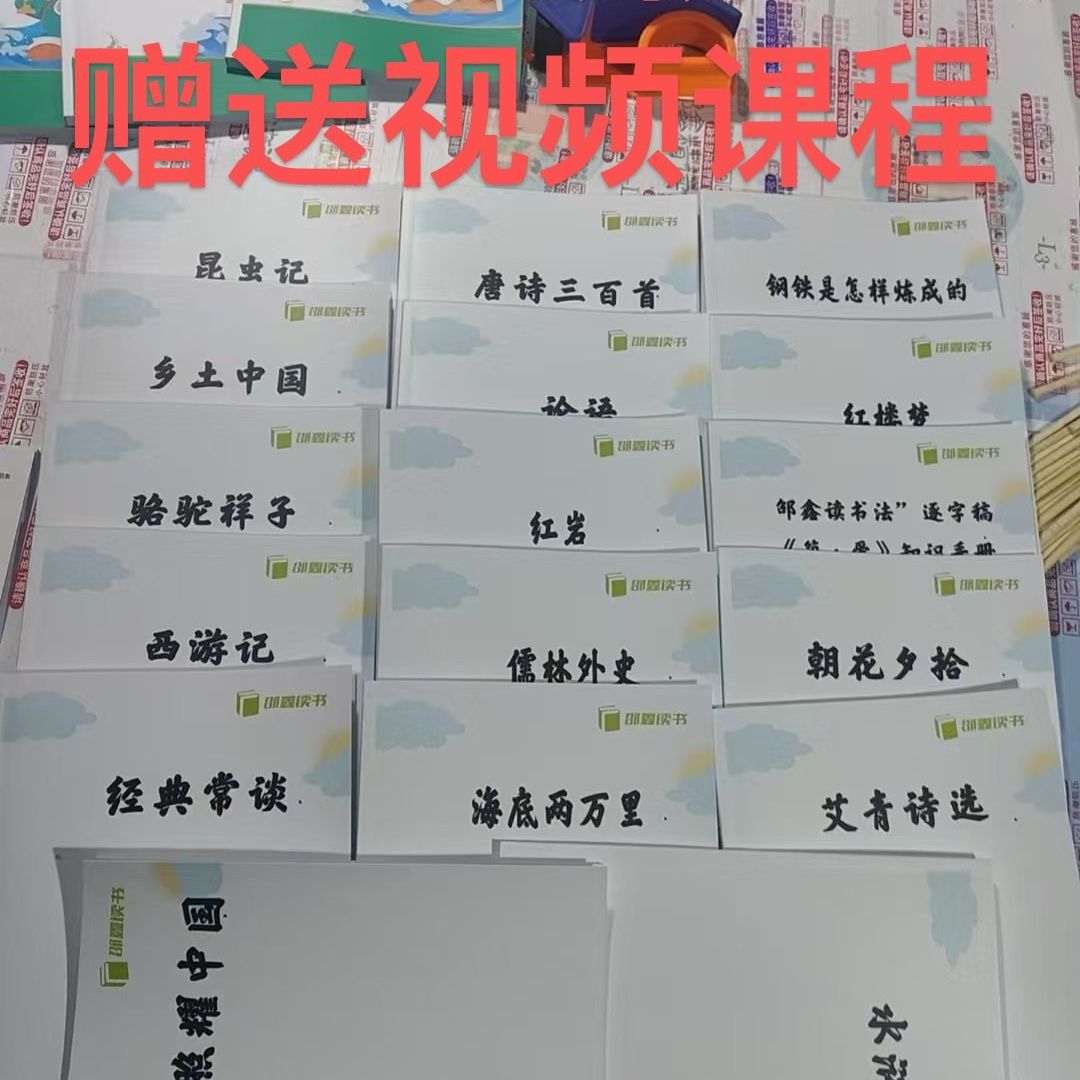 赠送视频课程
邵鑫读书
昆虫记
邵鑫读书
唐诗三百首
邵鑫读书
钢铁是怎样炼成的
邵鑫读书
乡土中国
邵鑫读书
论语
邵鑫读书
红楼梦
邵鑫读书
骆驼祥子
邵鑫读书
红岩
邵鑫读书
邹鑫读书法”逐字稿
知识手册
邵鑫读书
西游记
邵鑫读书
儒林外史
邵鑫读书
朝花夕拾
邵鑫读书
经典常谈
邵鑫读书
海底两万里
邵鑫读书
艾青诗选
邵鑫读书
照耀中国
水浒